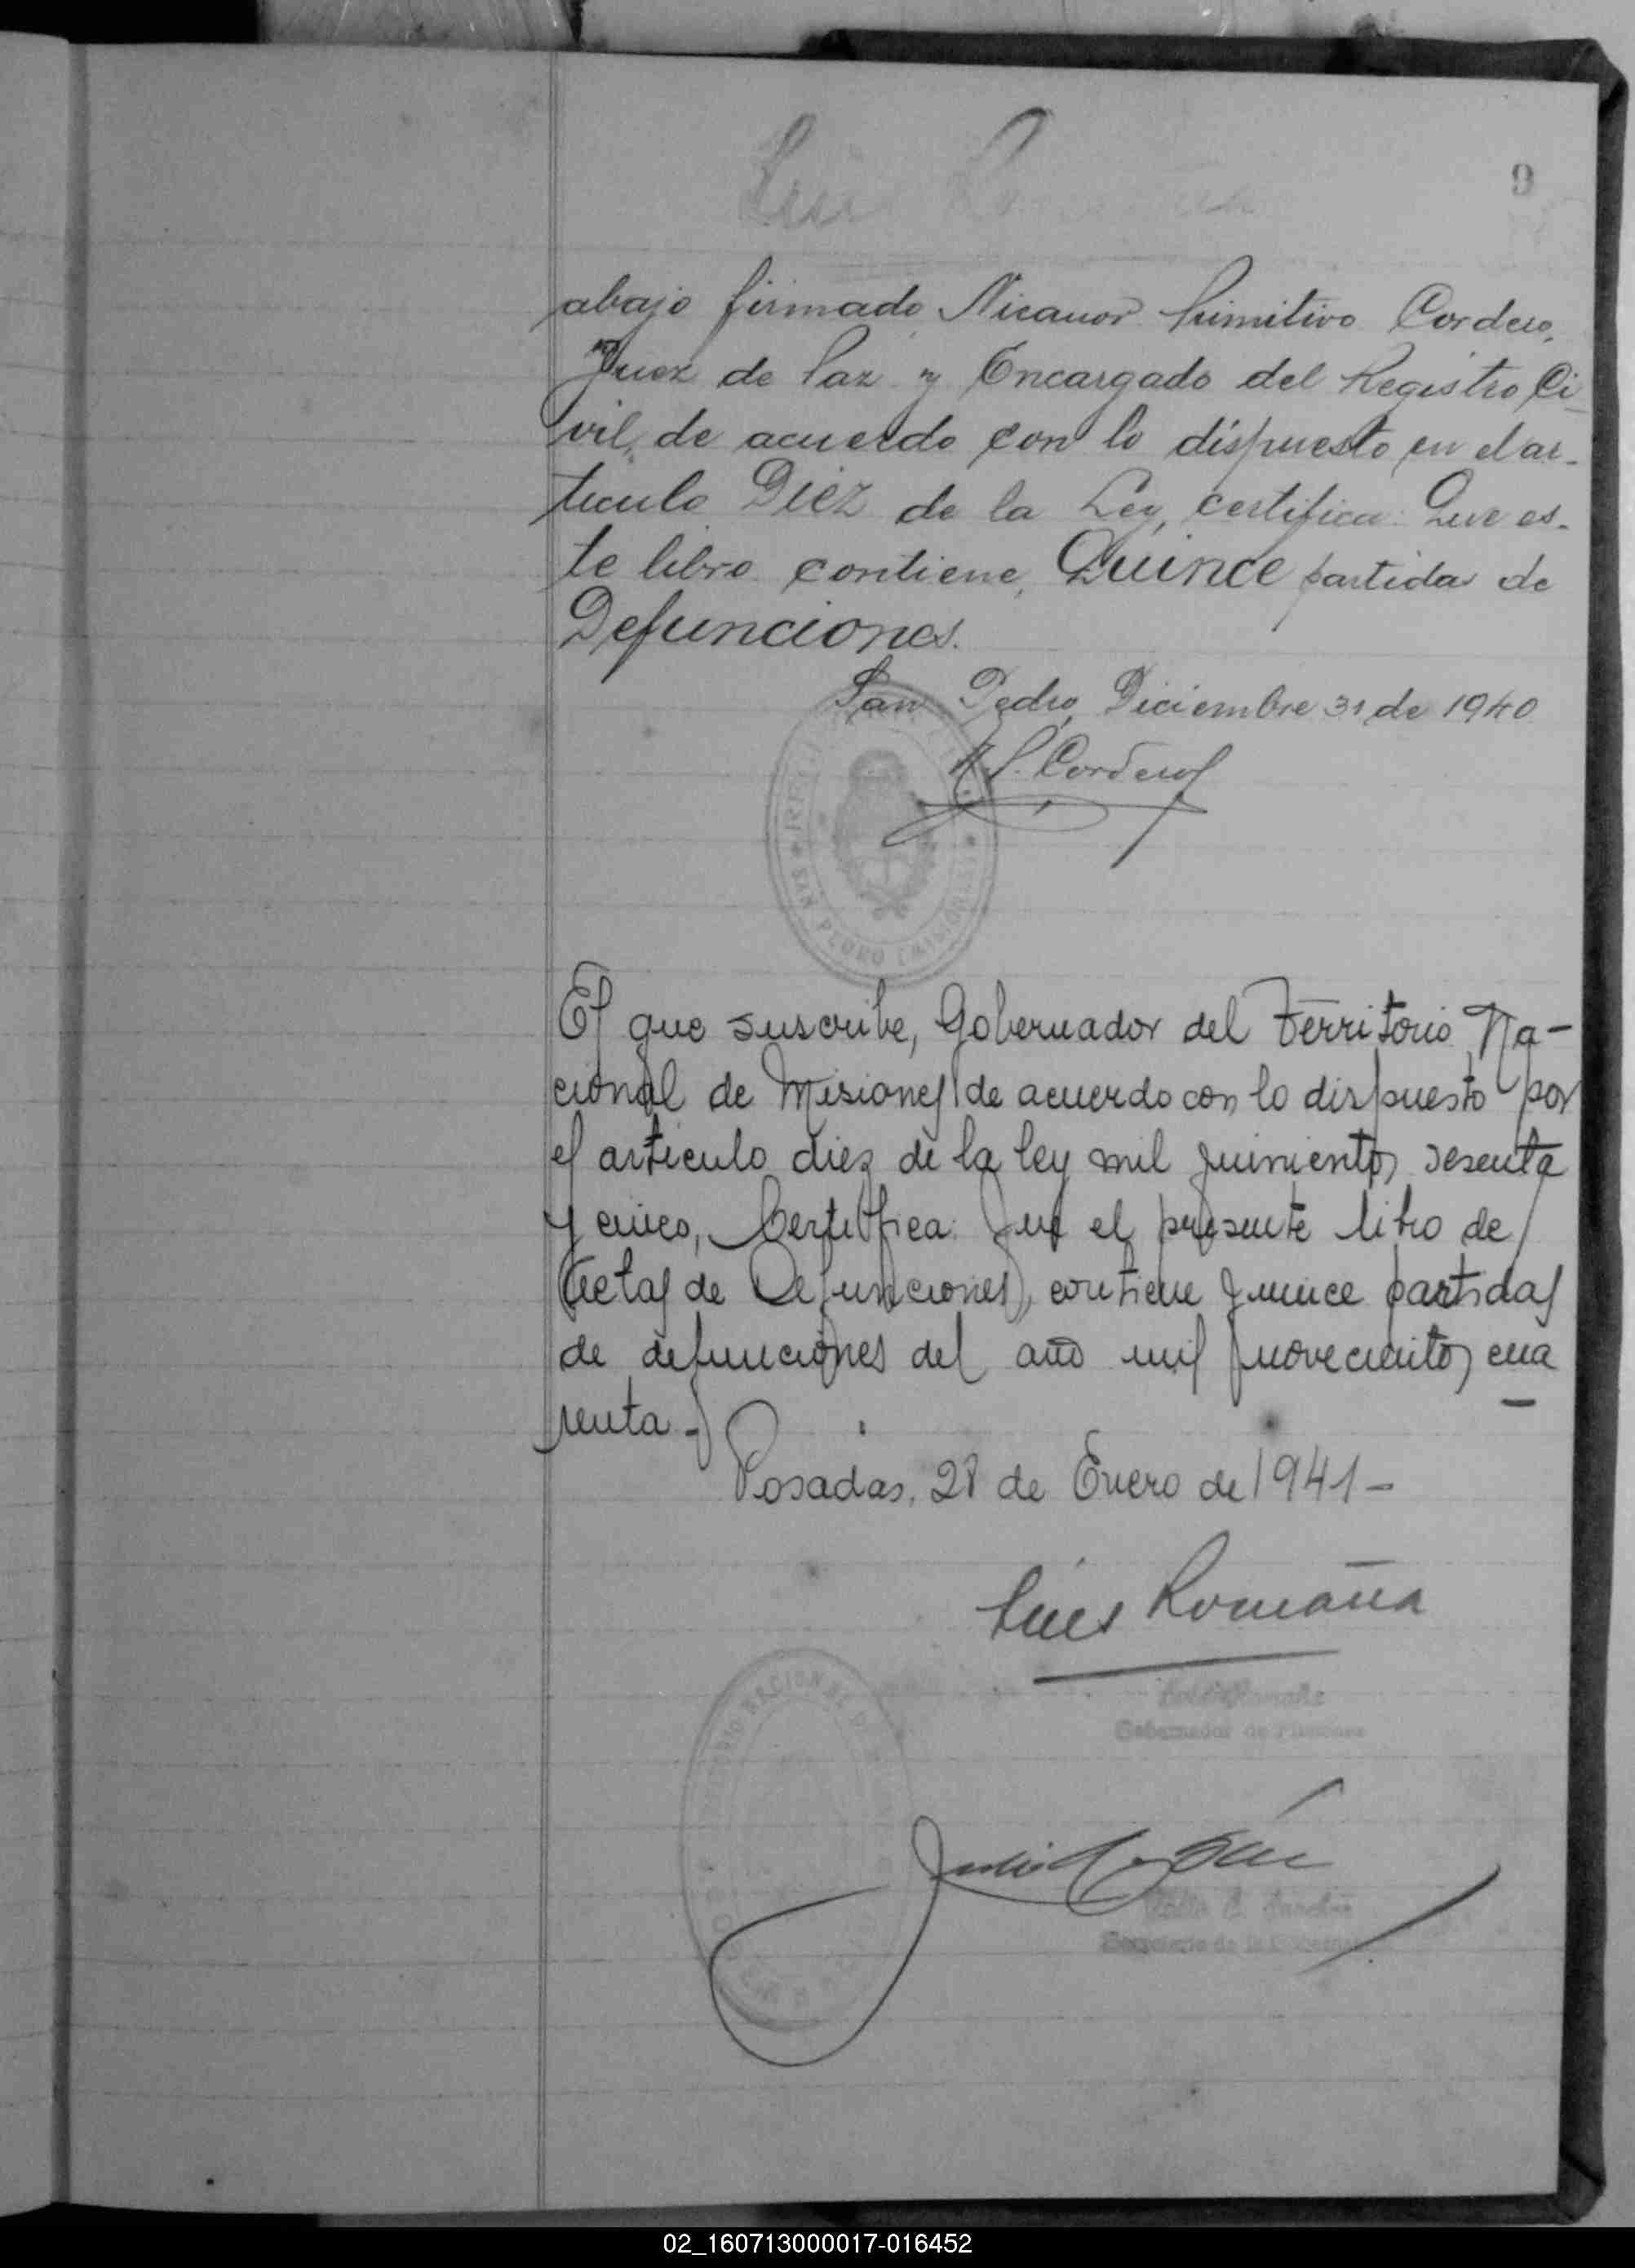 9
Luis Romaña
abajo firmado Nicanor Primitivo Cordero,
Juez de Paz y Encargado del Registro Ci
vil, de acuerdo con lo dispuesto en el ar-
ticulo Diez de la Ley, certifica: Que es-
te libro contiene, Quince partidas de
Defunciones.
San Pedro, Diciembre 31 de 1940
N. P. Cordero
SAN PEDRO (MISIONES)
El que suscribe, Gobernador del Territorio Na-
cional de Misiones, de acuerdo con lo dispuesto por
el artículo diez de la ley mil quinientos sesenta
y cinco, Certifica: Que el presente libro de
Actas de Defunciones, contiene quince partidas
de defunciones del año mil novecientos cua
renta.-
Posadas, 28 de Enero de 1941-
Luis Romaña
NACIONAL
Luis Romaña
Gobernador de Misiones
Julio
Secretario de la
02_160713000017-016452